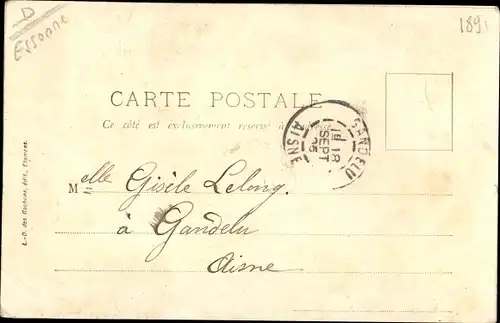 D
Essonne
1891
CARTE POSTALE
Ce côté est exclusivement réservé à
GANDELU
18
SEPT
05
AISNE
Melle Gisèle Lelong.
à Gandelu
Aisne
édit., Étampes.